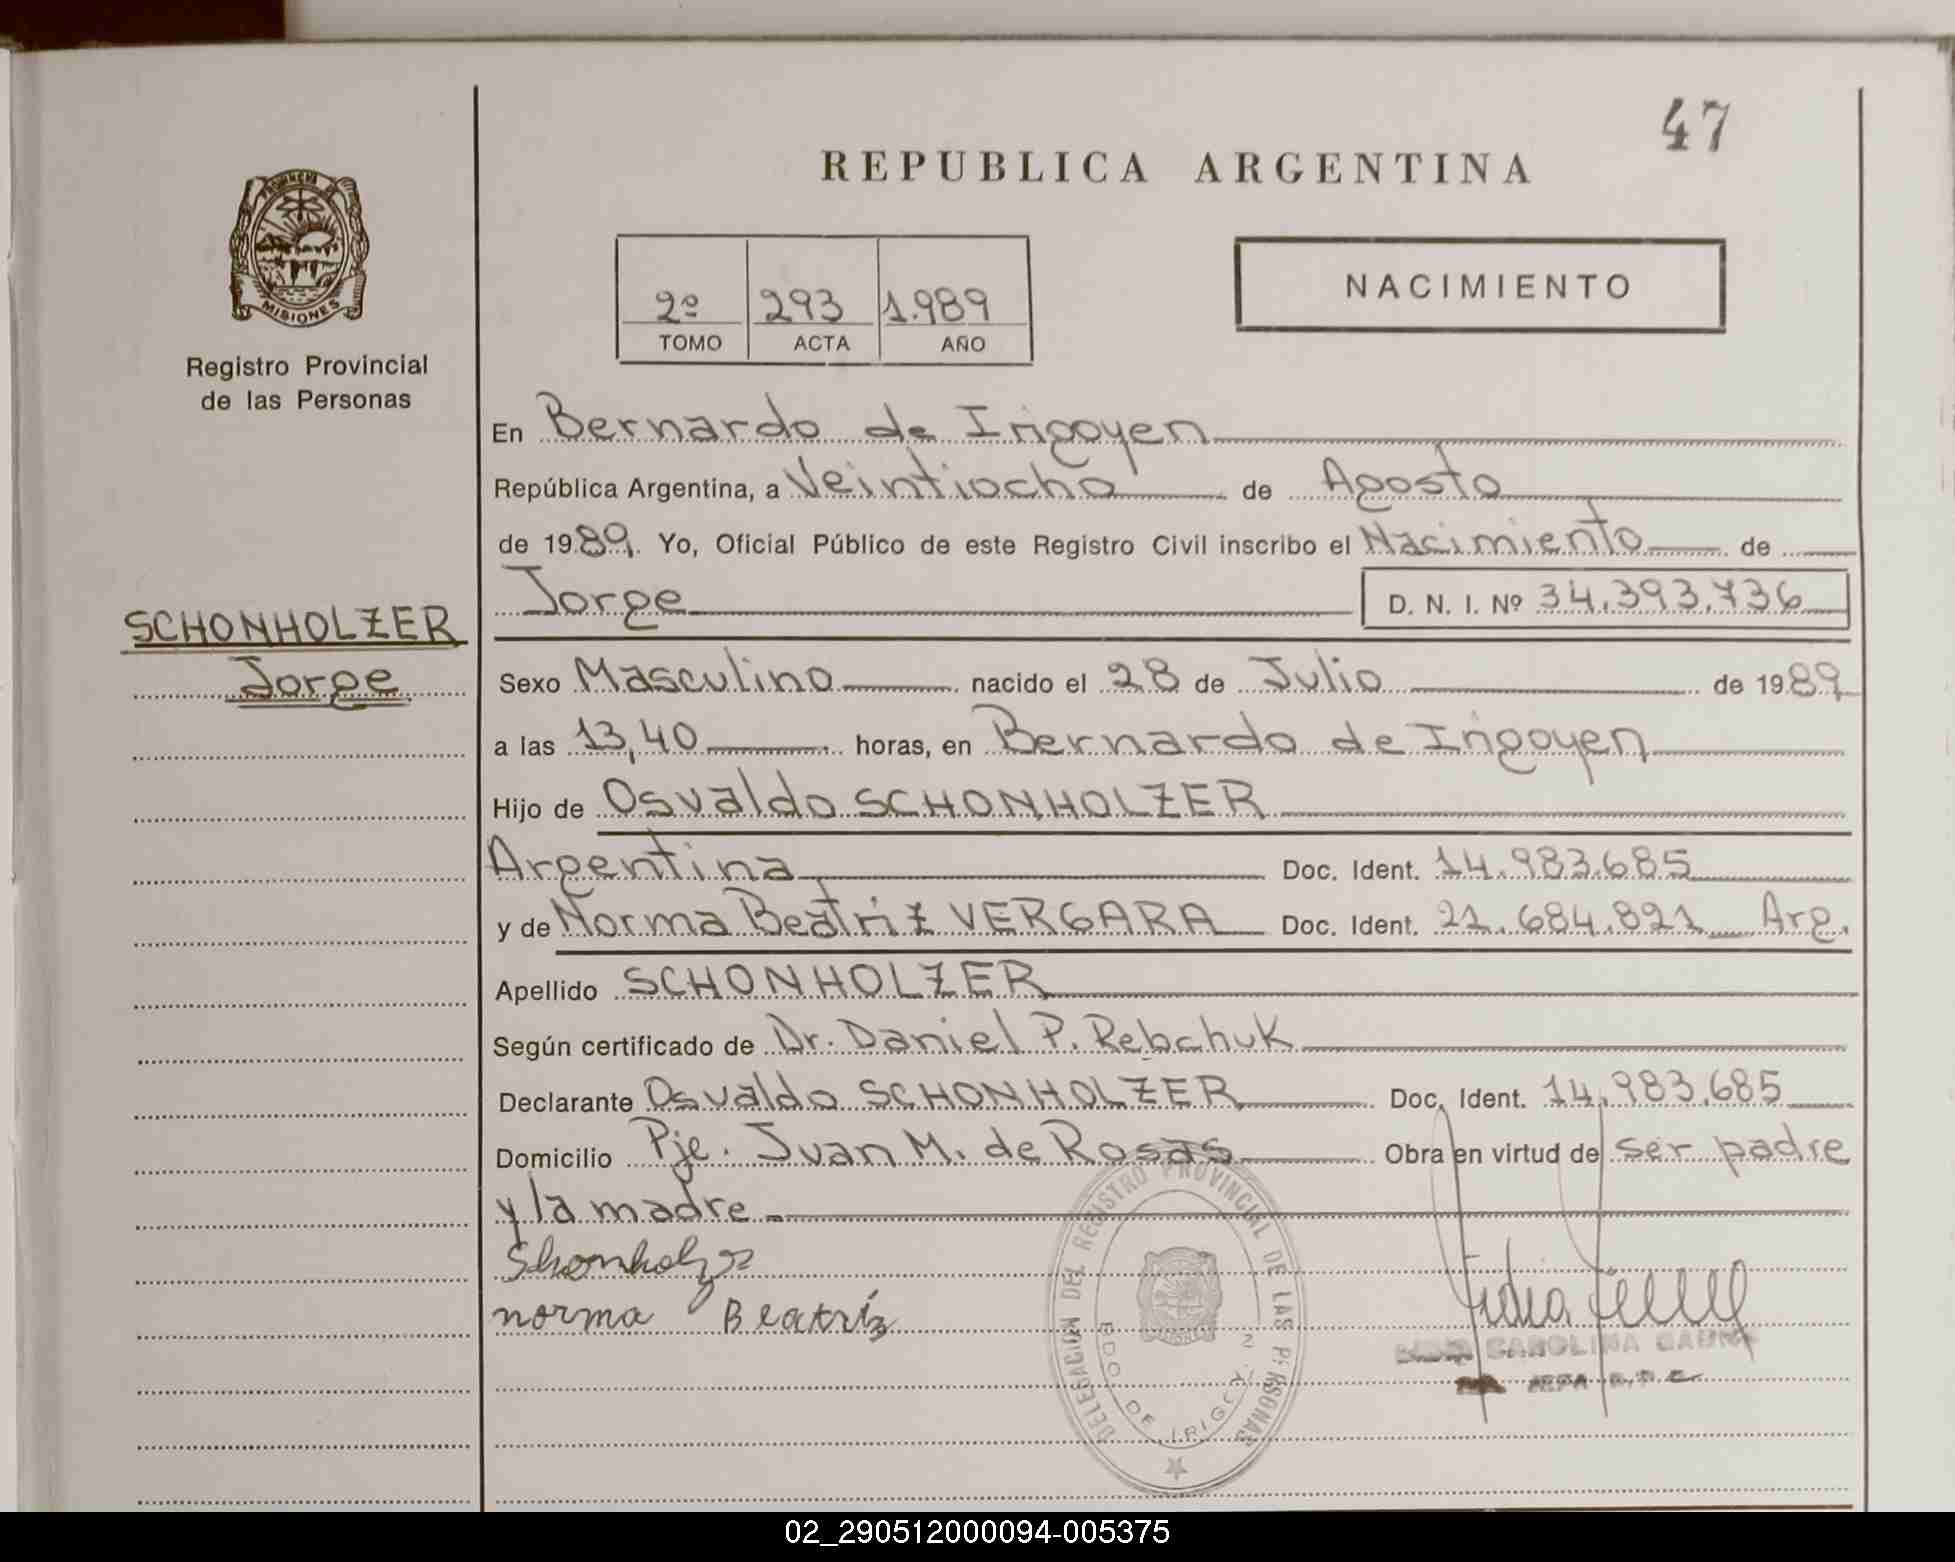 47
REPUBLICA ARGENTINA
PROVINCIA DE
MISIONES
Registro Provincial
de las Personas
2º 293 1.989
TOMO ACTA AÑO
NACIMIENTO
En Bernardo de Irigoyen
República Argentina, a Veintiocho de Agosto
de 1989. Yo, Oficial Público de este Registro Civil inscribo el Nacimiento de
Jorge D. N. I. Nº 34.393.736
SCHONHOLZER
Jorge
Sexo Masculino nacido el 28 de Julio de 1989
a las 13,40 horas, en Bernardo de Irigoyen
Hijo de Osvaldo SCHONHOLZER
Argentina Doc. Ident. 14.983.685
y de Norma Beatriz VERGARA Doc. Ident. 21.684.821 Arg.
Apellido SCHONHOLZER
Según certificado de Dr. Daniel P. Rebchuk
Declarante Osvaldo SCHONHOLZER Doc. Ident. 14.983.685
Domicilio Pje. Juan M. de Rosas Obra en virtud de ser padre
y la madre
norma Beatríz
DELEGACION DEL REGISTRO PROVINCIAL DE LAS PERSONAS
BDO DE IRIGOYEN
CAROLINA
JEFA
02_290512000094-005375